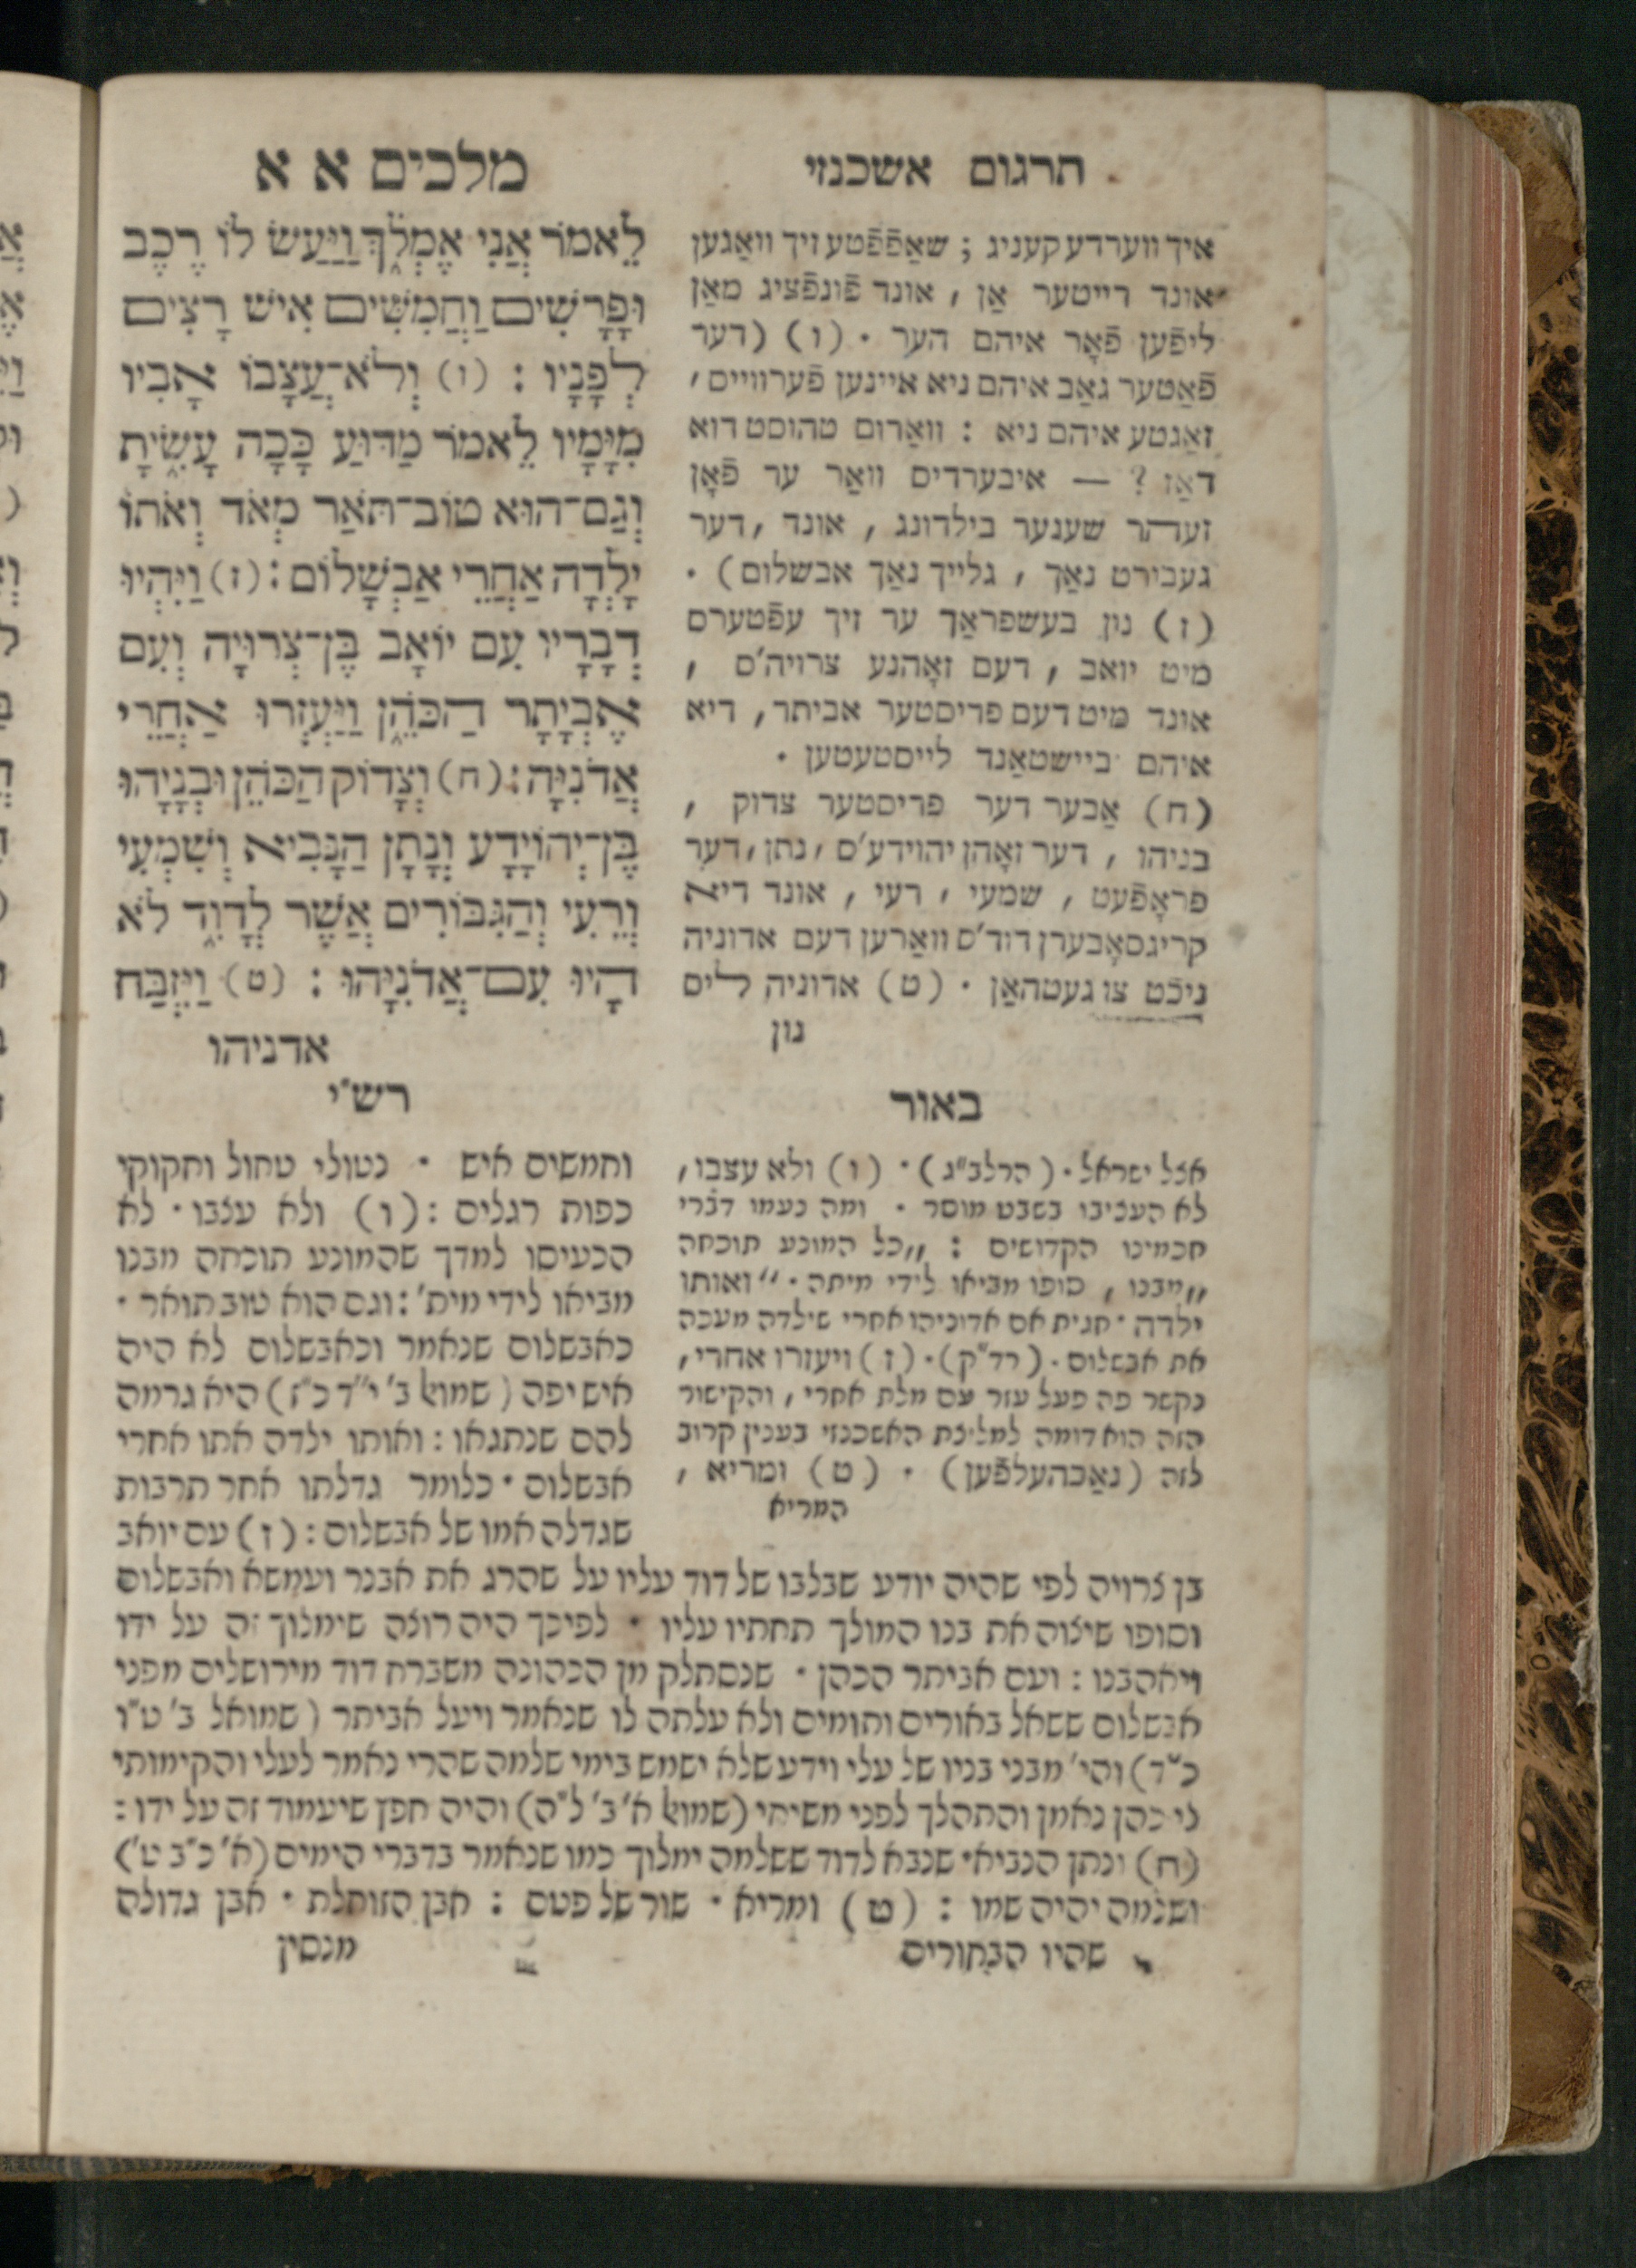 תרגום אשכנזי
איך ווערדע קעניג ; שאַפֿפֿטע זיך וואַגען
אונד רייטער אַן , אונד פֿונפֿציג מאַן
ליפֿען פֿאָר איהם הער . (ו) (דער
פֿאַטער גאַב איהם ניא איינען פֿערווייס ,
זאַגטע איהם ניא : וואַרום טהוסט דוא
דאַז ? — איבערדיס וואַר ער פֿאָן
זעהר שענער בילדונג , אונד , דער
געבורט נאַך , גלייך נאַך אבשלום) .
(ז) נון בעשפראַך ער זיך עפֿטערס
מיט יואב , דעם זאָהנע צרויה'ס ,
אונד מיט דעם פריסטער אביתר , דיא
איהם ביישטאַנד לייסטעטען .
(ח) אַבער דער פריסטער צדוק ,
בניהו , דער זאָהן יהוידע'ס , נתן , דער
פראָפֿעט , שמעי , רעי , אונד דיא
קריגסאָבערן דוד'ס וואַרען דעם אדוניה
ניכֿט צו געטהאַן . (ט) אדוניה ליס
נון
מלכים א א
לֵאמֹר אֲנִי אֶמְלֹ֑ךְ וַיַּעַשׂ לוֹ רֶכֶב
וּפָרָשִׁים וַחֲמִשִּׁים אִישׁ רָצִים
לְפָנָיו : (ו) וְלֹא־עֲצָבוֹ אָבִיו
מִיָּמָיו לֵאמֹר מַדּוּעַ כָּכָה עָשִׂ֑יתָ
וְגַם־הוּא טוֹב־תֹּאַר מְאֹד וְאֹתוֹ
יָלְדָה אַחֲרֵי אַבְשָׁלוֹם : (ז) וַיִּהְיוּ
דְבָרָיו עִם יוֹאָב בֶּן־צְרוּיָה וְעִם
אֶבְיָתָר הַכֹּהֵ֑ן וַיַּעְזְרוּ אַחֲרֵי
אֲדֹנִיָּה : (ח) וְצָדוֹק הַכֹּהֵן וּבְנָיָהוּ
בֶּן־יְהוֹיָדָע וְנָתָן הַנָּבִיא וְשִׁמְעִי
וְרֵעִי וְהַגִּבּוֹרִים אֲשֶׁר לְדָוִ֑ד לֹא
הָיוּ עִם־אֲדֹנִיָּהוּ : (ט) וַיִּזְבַּח
אדניהו
באור
אצל ישראל . (הרלב"ג) . (ו) ולא עצבו ,
לא העציבו בשבט מוסר . ומה נעמו דברי
חכמינו הקדושים : „כל המונע תוכחה
„מבנו , סופו מביאו לידי מיתה . " ואותו
ילדה . חגית אם אדוניהו אחרי שילדה מעכה
את אבשלום . (רד"ק) . (ז) ויעזרו אחרי ,
נקשר פה פעל עזר עם מלת אחרי , והקישור
הזה הוא דומה למליצת האשכנזי בענין קרוב
לזה (נאַכהעלפֿען) . (ט) ומריא ,
המריא
רש"י
וחמשים איש . נטולי טחול וחקוקי
כפות רגלים : (ו) ולא עצבו . לא
הכעיסו למדך שהמונע תוכחה מבנו
מביאו לידי מית' : וגם הוא טוב תואר .
כאבשלום שנאמר וכאבשלום לא היה
איש יפה (שמואל ב' י"ד כ"ז) היא גרמה
להם שנתגאו : ואותו ילדה אתו אחרי
אבשלום . כלומר גדלתו אחר תרבות
שגדלה אמו של אבשלום : (ז) עם יואב
בן צרויה לפי שהיה יודע שבלבו של דוד עליו על שהרג את אבנר ועמשא ואבשלום
וסופו שיצוה את בנו המולך תחתיו עליו . לפיכך היה רוצה שימלוך זה על ידו
ויאהבנו : ועם אביתר הכהן . שנסתלק מן הכהונה משברח דוד מירושלים מפני
אבשלום ששאל באורים ותומים ולא עלתה לו שנאמר ויעל אביתר (שמואל ב' ט"ו
כ"ד) והי' מבני בניו של עלי וידע שלא ישמש בימי שלמה שהרי נאמר לעלי והקימותי
לי כהן נאמן והתהלך לפני משיחי (שמואל א' ב' ל"ה) והיה חפץ שיעמוד זה על ידו :
(ח) ונתן הנביא שנבא לדוד ששלמה ימלוך כמו שנאמר בדברי הימים (א' כ"ב ט')
ושלמה יהיה שמו : (ט) ומריא . שור של פטם : אבן הזוחלת . אבן גדולה
שהיו הבחורים
מנסין